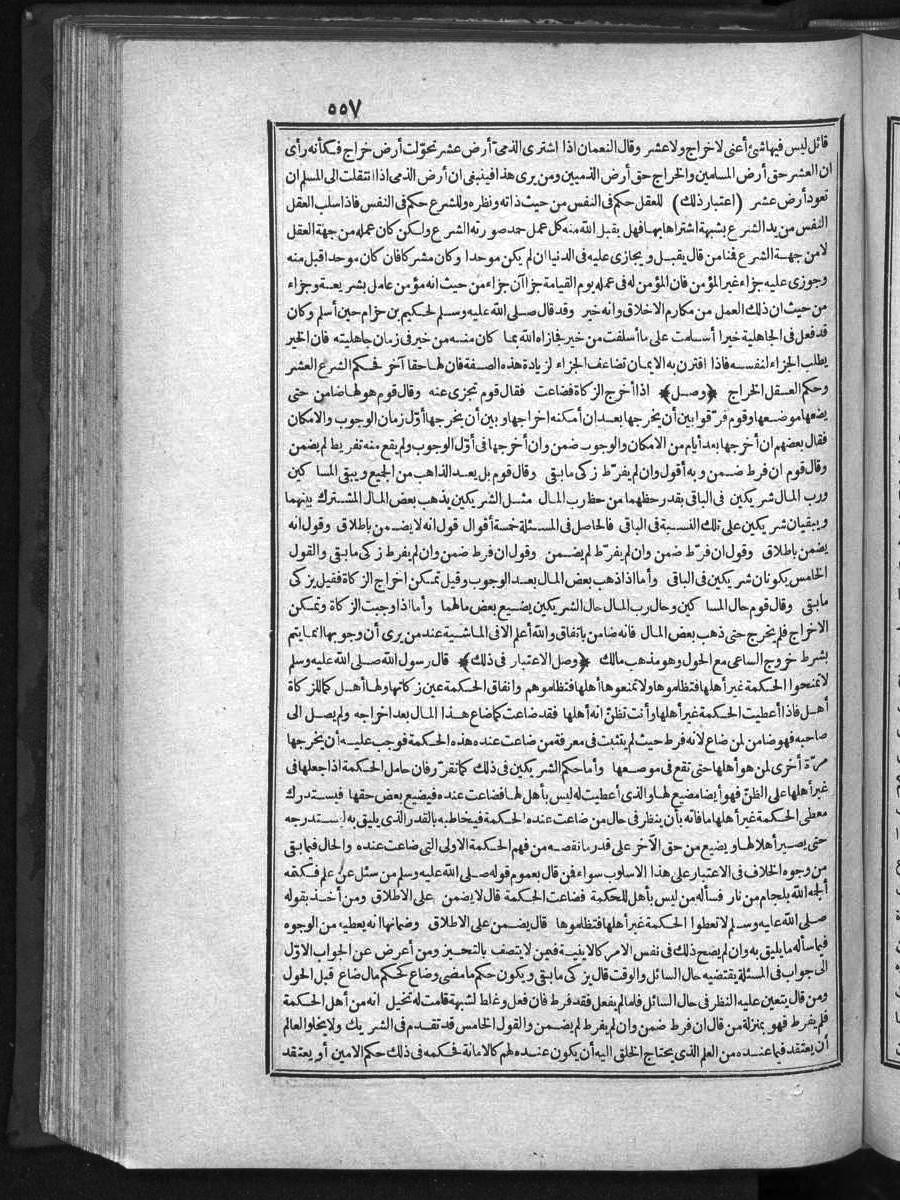 ٥٥٧
قائل ليس فيها شئ أعنى لاخراج ولا عشر وقال النعمان اذا اشترى الذمىّ أرض عشر تحوّلت أرض خراج فكأنه رأى
ان العشر حق أرض المسلمين والخراج حق أرض الذميين ومن يرى هذا فينبغى ان أرض الذمى اذا انتقلت الى المسلم ان
تعود أرض عشر (اعتبار ذلك) للعقل حكم فى النفس من حيث ذاته ونظره وللشرع حكم فى النفس فاذا سلب العقل
النفس من يد الشرع بشبهة اشتراها بها فهل يقبل الله منه كل عمل حمد صورته الشرع ولكن كان عمله من جهة العقل
لا من جهة الشرع فمنا من قال يقبل ويجازى عليه فى الدنيا ان لم يكن موحدا وكان مشركا فان كان موحدا قبل منه
وجوزى عليه جزاء غير المؤمن فان المؤمن له فى عمله يوم القيامة جزا آن جزاء من حيث انه مؤمن عامل بشريعة وجزاء
من حيث ان ذلك العمل من مكارم الاخلاق وانه خير وقد قال صلى الله عليه وسلم لحكيم بن حزام حين أسلم وكان
قد فعل فى الجاهلية خيرا أسلمت على ما أسلفت من خير فجازاه الله بما كان منه من خير فى زمان جاهليته فان الخير
يطلب الجزاء لنفسه فاذا اقترن به الايمان تضاعف الجزاء لزيادة هذه الصفة فان لها حقا آخر فحكم الشرع العشر
وحكم العقل الخراج ﴿وصل﴾ اذا أخرج الزكاة فضاعت فقال قوم تجزى عنه وقال قوم هو لها ضامن حتى
يضعها موضعها وقوم فرّقوا بين أن يخرجها بعد ان أمكنه اخراجها وبين أن يخرجها أوّل زمان الوجوب والامكان
فقال بعضهم ان أخرجها بعد أيام من الامكان والوجوب ضمن وان أخرجها فى أوّل الوجوب ولم يقع منه تفريط لم يضمن
وقال قوم ان فرط ضمن وبه أقول وان لم يفرّط زكى ما بقى وقال قوم بل يعد الذاهب من الجميع ويبقى المساكين
ورب المال شريكين فى الباقى بقدر حظهما من حظ رب المال مثل الشريكين يذهب بعض المال المشترك بينهما
ويبقيان شريكين على تلك النسبة فى الباقى فالحاصل فى المسئلة خمسة أقوال قول انه لا يضمن باطلاق وقول انه
يضمن باطلاق وقول ان فرّط ضمن وان لم يفرّط لم يضمن وقول ان فرط ضمن وان لم يفرط زكى ما بقى والقول
الخامس يكونان شريكين فى الباقى وأما اذا ذهب بعض المال بعد الوجوب وقبل تمكن اخراج الزكاة فقيل يزكى
ما بقى وقال قوم حال المساكين وحال رب المال حال الشريكين يضيع بعض مالهما وأما اذا وجبت الزكاة وتمكن
الاخراج فلم يخرج حتى ذهب بعض المال فانه ضامن باتفاق والله أعلم الا فى الماشية عند من يرى أن وجوبها انما يتم
بشرط خروج الساعى مع الحول وهو مذهب مالك ﴿وصل الاعتبار فى ذلك﴾ قال رسول الله صلى الله عليه وسلم
لا تمنحوا الحكمة غير أهلها فتظلموها ولا تمنعوها أهلها فتظلموهم وانفاق الحكمة عين زكاتها ولها أهل كما للزكاة
أهل فاذا أعطيت الحكمة غير أهلها وأنت تظنّ انه أهلها فقد ضاعت كما ضاع هذا المال بعد اخراجه ولم يصل الى
صاحبه فهو ضامن لمن ضاع لانه فرط حيث لم يتثبت فى معرفة من ضاعت عنده هذه الحكمة فوجب عليه أن يخرجها
مرّة أخرى لمن هو أهلها حتى تقع فى موضعها وأما حكم الشريكين فى ذلك كما تقرّر فان حامل الحكمة اذا جعلها فى
غير أهلها على الظنّ فهو أيضا مضيع لها والذى أعطيت له ليس بأهل لها فضاعت عنده فيضيع بعض حقها فيستدرك
معطى الحكمة غير أهلها ما فاته بأن ينظر فى حال من ضاعت عنده الحكمة فيخاطبه بالقدر الذى يليق به ليستدرجه
حتى يصير أهلا لها ويضيع من حق الآخر على قدر ما نقصه من فهم الحكمة الاولى التى ضاعت عنده والحال فيما بقى
من وجوه الخلاف فى الاعتبار على هذا الاسلوب سواء فمن قال بعموم قوله صلى الله عليه وسلم من سئل عن علم فكتمه
ألجمه الله بلجام من نار فسأله من ليس بأهل للحكمة فضاعت الحكمة قال لا يضمن على الاطلاق ومن أخذ بقوله
صلى الله عليه وسلم لا تعطوا الحكمة غير أهلها فتظلموها قال يضمن على الاطلاق وضمانها انه يعطيه من الوجوه
فيما سأله ما يليق به وان لم يصح ذلك فى نفس الامر كالاينية فيمن لا يتصف بالتحيز ومن أعرض عن الجواب الاوّل
الى جواب فى المسئلة يقتضيه حال السائل والوقت قال يزكى ما بقى ويكون حكم ما مضى وضاع كحكم مال ضاع قبل الحول
ومن قال يتعين عليه النظر فى حال السائل فلما لم يفعل فقد فرط فان فعل وغلط لشبهة قامت له تخيل انه من أهل الحكمة
فلم يفرط فهو بمنزلة من قال ان فرط ضمن وان لم يفرط لم يضمن والقول الخامس قد تقدم فى الشريك ولا يخلو العالم
أن يعتقد فيما عنده من العلم الذى يحتاج الخلق اليه أن يكون عنده لهم كالامانة فحكمه فى ذلك حكم الامين أو يعتقد